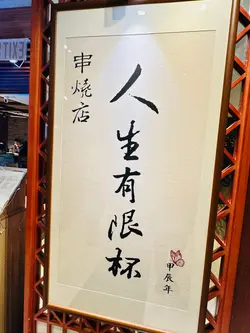 EXIT
串燒店
人生有限杯
甲辰年